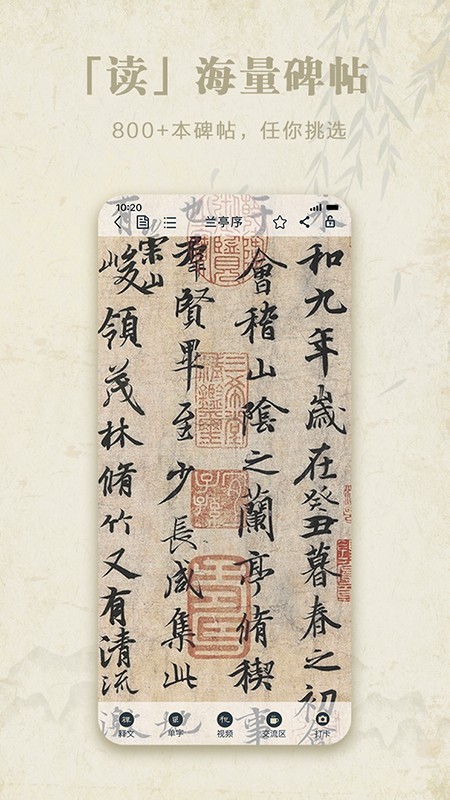 「读」海量碑帖
800+本碑帖，任你挑选
10:20
兰亭序
和九年歲在癸丑暮春之初會
于會稽山陰之蘭亭脩稧事
也羣賢畢至少長咸集此地
有崇山峻領茂林脩竹又有清流激
释文
单字
视频
交流区
打卡